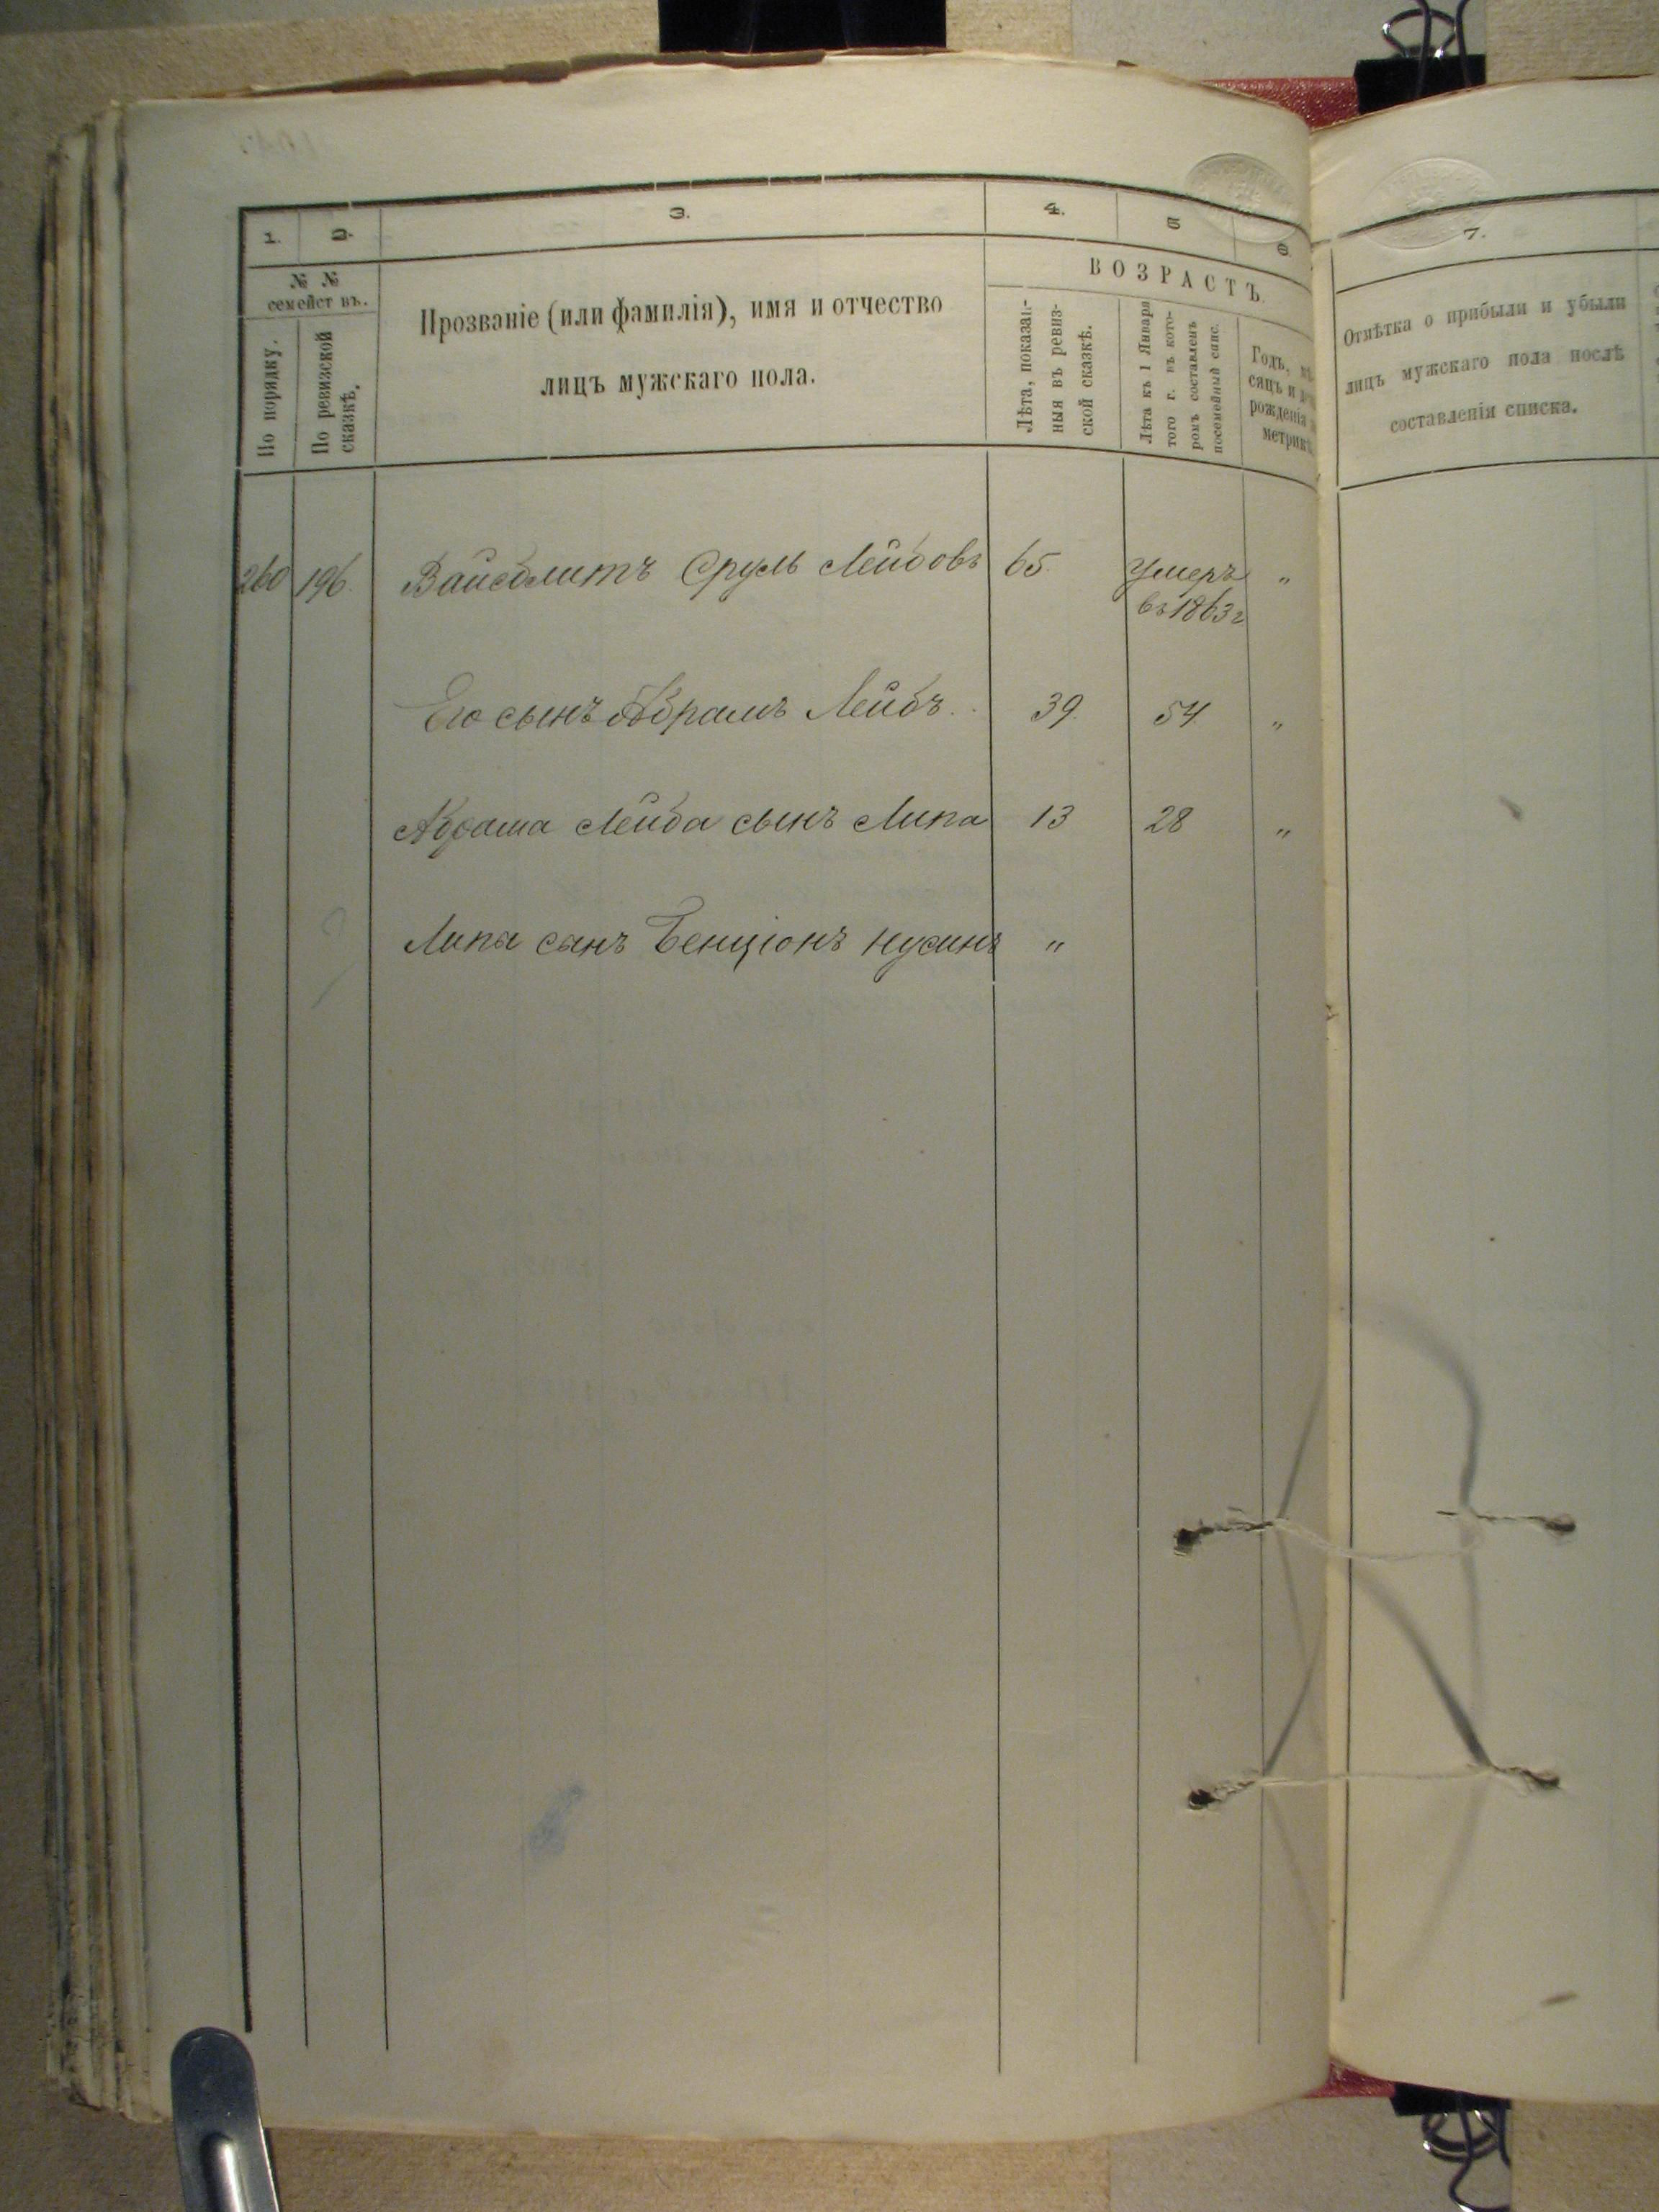 1.
2.
3.
4.
5
6.
7.
№ №
семействъ.
По порядку.
По ревизской
сказкѣ.
Прозваніе (или фамилія), имя и отчество
лицъ мужскаго пола.
ВОЗРАСТЪ.
Лѣта, показан-
ныя въ ревиз-
ской сказкѣ.
Лѣта къ 1 Января
того г. въ кото-
ромъ составленъ
посемейный спис.
Годъ, мѣ
сяцъ и
рожденія
метрик
Отмѣтка о прибыли и убыли
лицъ мужскаго пола послѣ
составленія списка.
260 196. Срулъ Лейбовъ 65. Умеръ "
въ 1863 г
Его сынъ Абрамъ Лейбъ. 39. 54 "
Абрама Лейба сынъ Липа 13 28 "
Липы сынъ Бенціонъ Нусинъ "